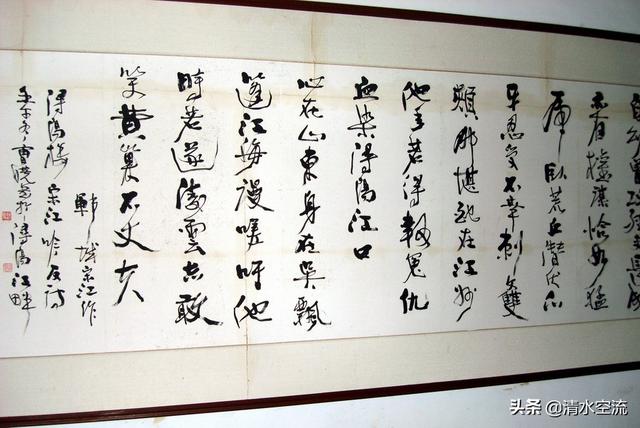 自幼曾攻經史長成
亦有權謀恰如猛
虎卧荒丘潜伏爪
牙忍受不幸刺文雙
頰那堪配在江州
他年若得報冤仇
血染潯陽江口
心在山東身在吳飄
蓬江海謾嗟吁他
時若遂凌雲志敢
笑黄巢不丈夫
鄆城宋江作
潯陽樓宋江吟反詩
於潯陽江畔
头条 @清水空流